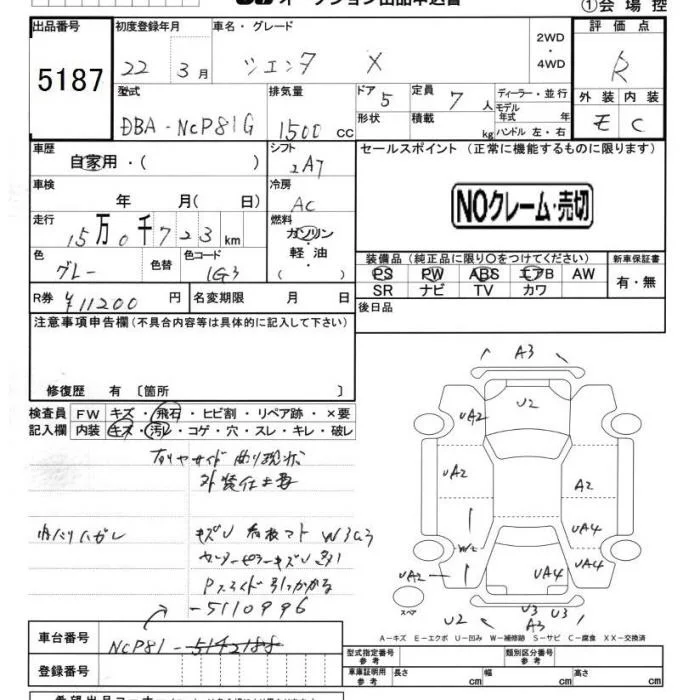 オークション出品申込書
①会場控
出品番号 5187
初度登録年月 22 3月
車名・グレード シエンタ X
2WD・4WD
評価点 R
外装 E 内装 C
型式 DBA-NCP81G
排気量 1500 CC
ドア 5 形状
定員 7 人 積載 kg
ディーラー・並行
モデル年式 年
ハンドル 左・右
車歴 自家用・( )
シフト 2A7
セールスポイント (正常に機能するものに限ります)
車検 年 月( 日)
冷房 AC
NOクレーム・売切
走行 15万0千723km
燃料 ガソリン・軽油 ( )
色 グレー 色替 色コード 1G3
装備品 (純正品に限り○をつけてください) 新車保証書
PS PW ABS エアB AW
SR ナビ TV カワ
有・無
R券 ¥11200 円 名変期限 月 日
後日品
注意事項申告欄 (不具合内容等は具体的に記入して下さい)
修復歴 有 〔箇所 〕
検査員記入欄
FW キズ・飛石・ヒビ割・リペア跡・×要
内装 キズ・汚レ・コゲ・穴・スレ・キレ・破レ
外装仕上要
内ハリハガレ
-5110996
A3
U2
UA2
UA2
A2
UA4
W2
UA4
UA2
UA4
スペア
U2 U3 U3
A3
A-キズ E-エクボ U-凹み W-補修跡 S-サビ C-腐食 XX-交換済
車台番号 NCP81-5142188
登録番号
型式指定番号 参考 類別区分番号 参考
車庫証明用 参考 長さ cm 幅 cm 高さ cm